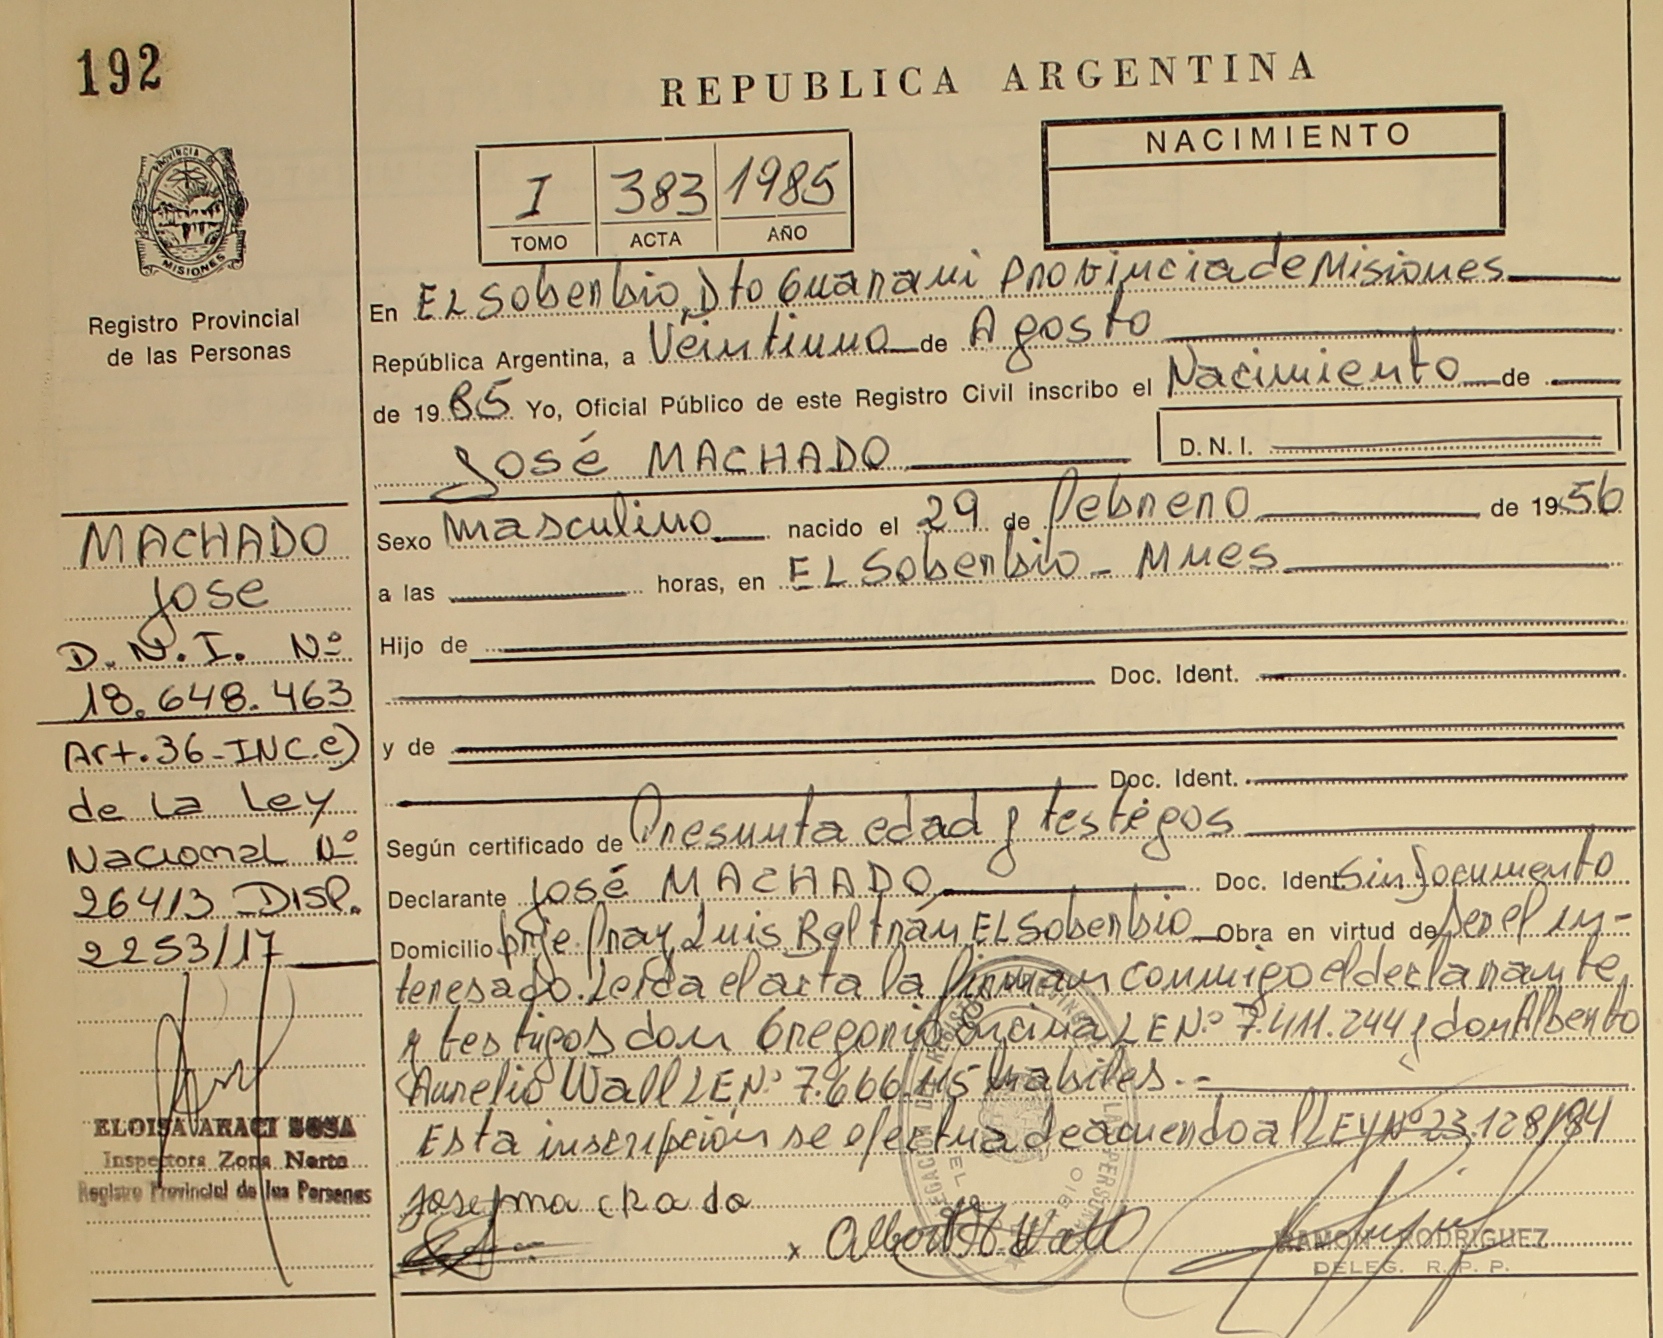 192
REPUBLICA ARGENTINA
PROVINCIA DE
MISIONES
Registro Provincial
de las Personas
I 383 1985
TOMO ACTA AÑO
NACIMIENTO
En EL Soberbio, Dto Guarani Provincia de Misiones
República Argentina, a Veintiuno de Agosto
de 1985 Yo, Oficial Público de este Registro Civil inscribo el Nacimiento de
José MACHADO D.N.I.
Sexo masculino nacido el 29 de Febrero de 1956
a las horas, en EL Soberbio - Mnes
Hijo de
Doc. Ident.
y de
Doc. Ident.
Según certificado de Presunta edad y testigos
Declarante José MACHADO Doc. Ident. Sin Documento
Domicilio Fray Luis Beltrán EL Soberbio Obra en virtud de ser el in-
teresado. Leida el acta la firman conmigo el declarante,
y testigos don Gregorio Encina LE Nº 7.411.244 y don Alberto
Aurelio Wall LE Nº 7.666.115 habiles.-
Esta inscripción se efectua de acuerdo al LEY Nº 23.128/84
Jose machado
x Albert A. Wall
RAMON RODRIGUEZ
DELEG. R. P. P.
MACHADO
Jose
D.N.I. Nº
18.648.463
Art.36-INC.c)
de La Ley
Nacional Nº
26413 DISP.
2253/17
ELOISA ARACI SOSA
Inspectora Zona Norte
Registro Provincial de las Personas